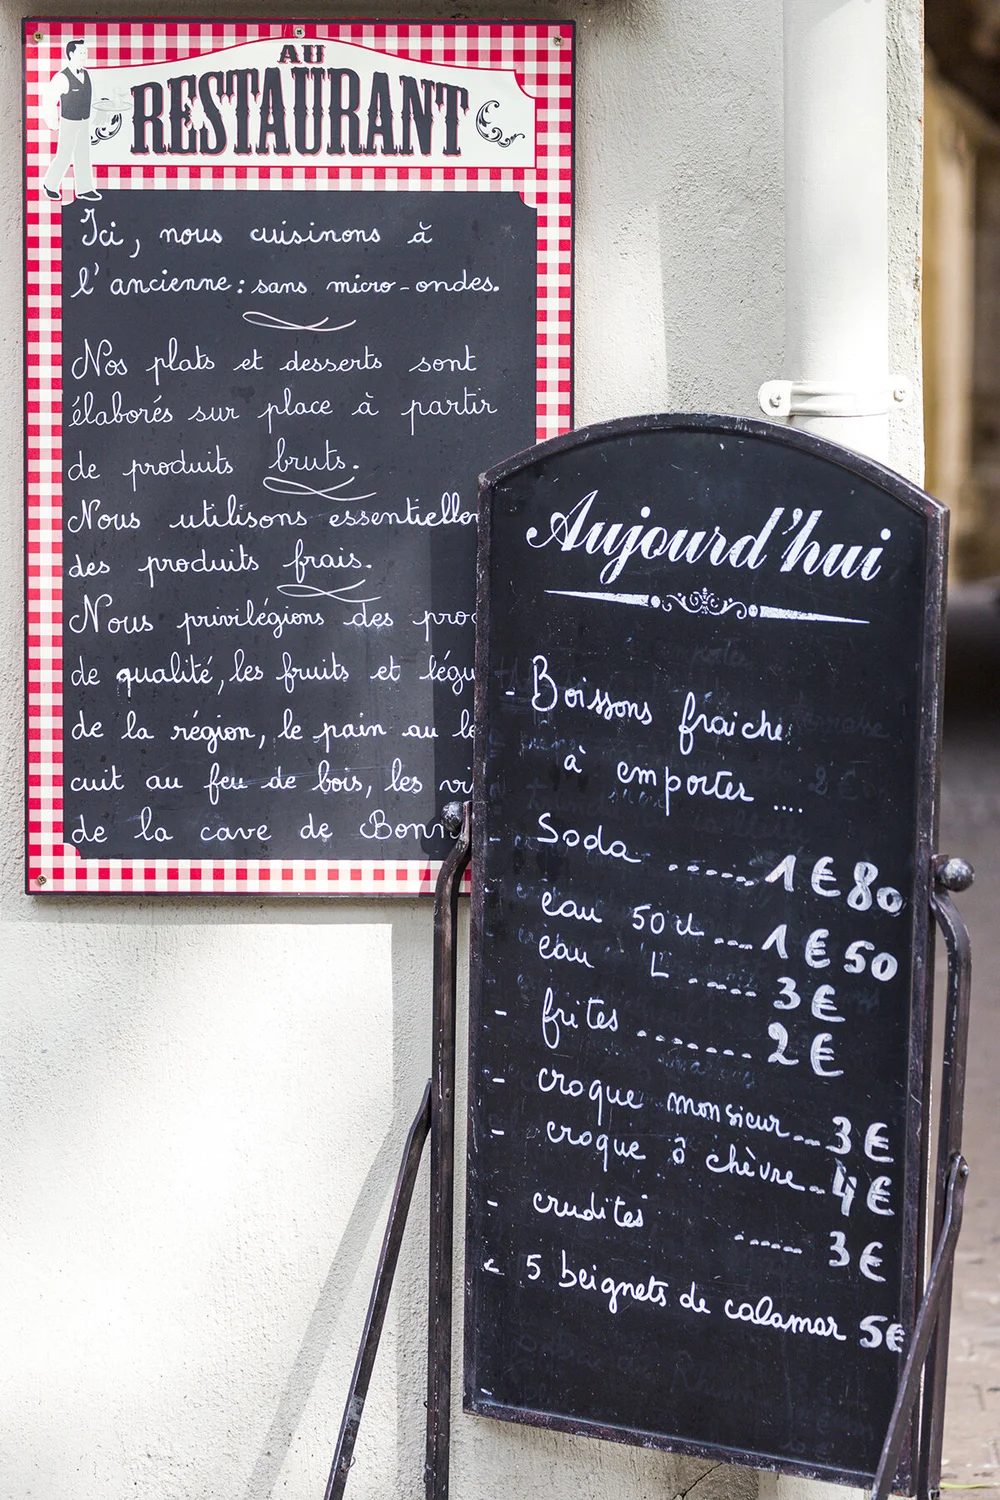 AU
RESTAURANT
Ici, nous cuisinons à
l'ancienne : sans micro-ondes.
Nos plats et desserts sont
élaborés sur place à partir
de produits bruts.
Nous utilisons essentiellem
des produits frais.
Nous privilégions des pro
de qualité, les fruits et légu
de la région, le pain au le
cuit au feu de bois, les vi
de la cave de Bonn
Aujourd'hui
- Boissons fraiche
à emporter ....
Soda ...... 1€80
eau 50cl .... 1€50
eau L ...... 3€
- frites ........ 2€
- croque monsieur... 3€
- croque ô chèvre.. 4€
- crudités ...... 3€
- 5 beignets de calamar 5€